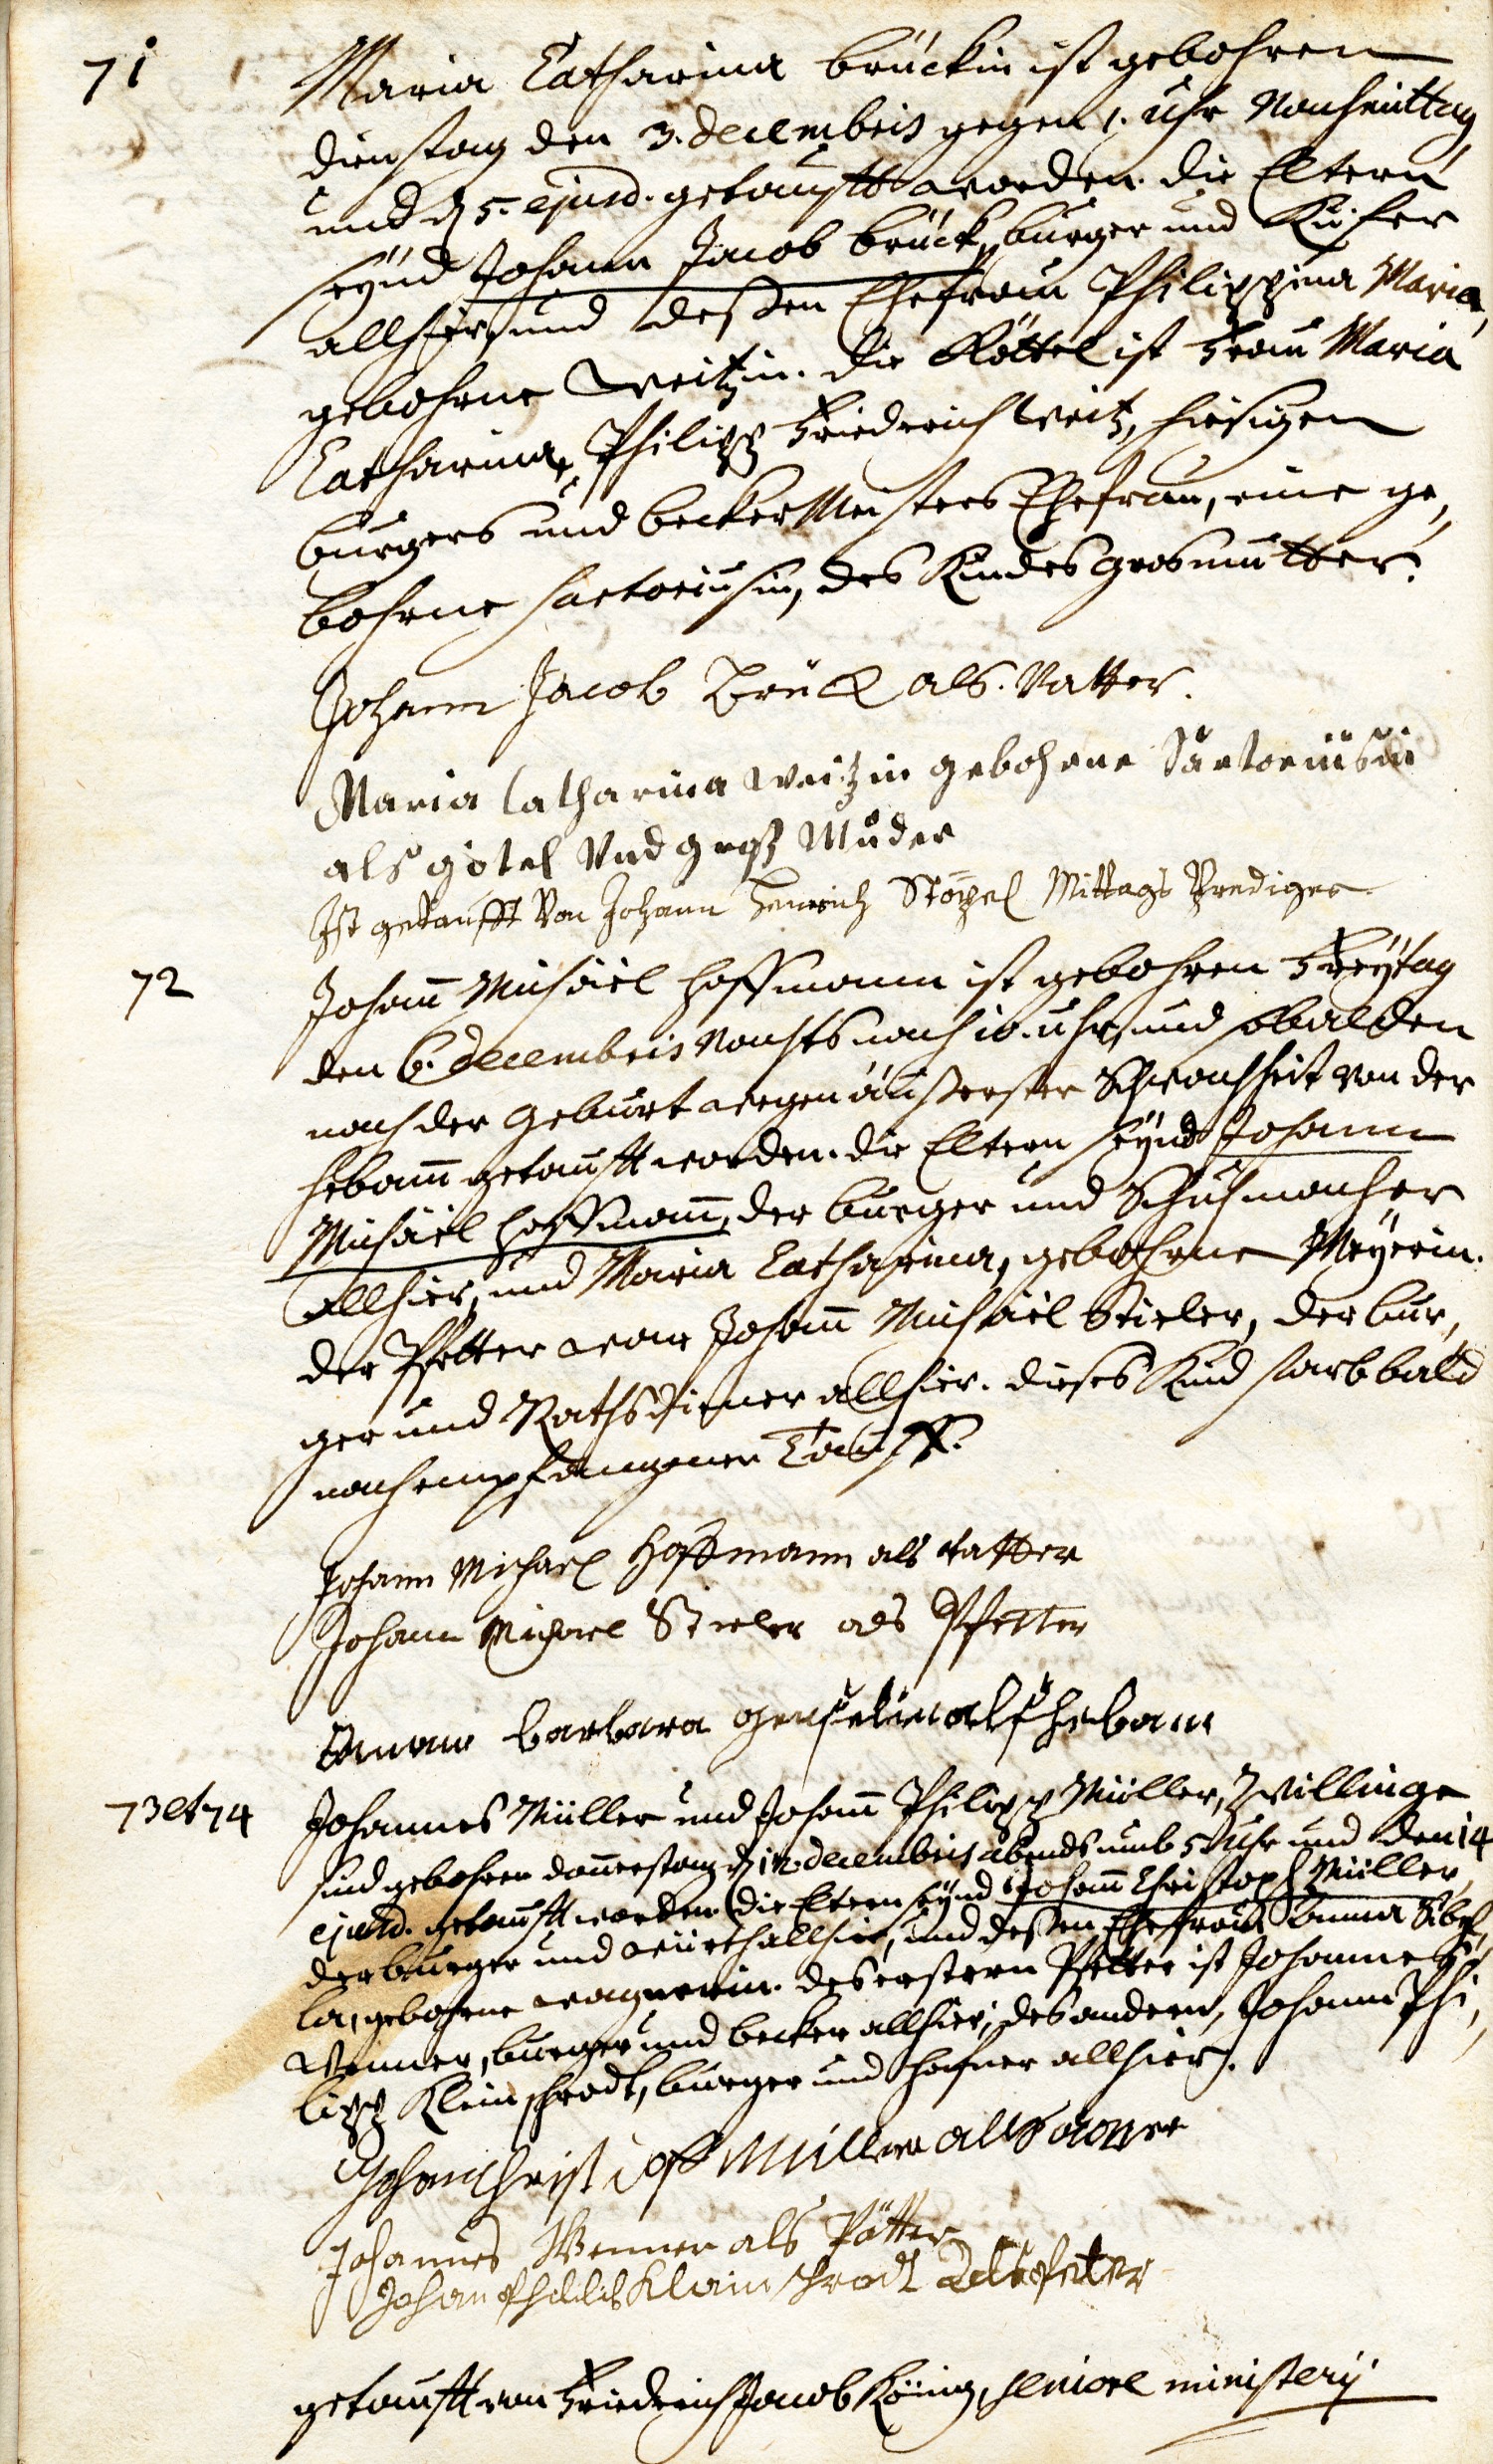 71 Maria Catharina brückin ist gebohren
dienstag den 3. decembris gegen 1. uhr Nachmittag,
und d. 5. ejusd. getaufft worden. die Eltern
seynd Johann Jacob brück, burger und Küfer
allhier, und deßen Ehefrau Philippina Maria,
gebohrne Weitzin. die Göttel ist Frau Maria
Catharina, Philipp Friedrich Weitz, hiesigen
burgers und becker Meisters Ehefrau, eine ge,
bohrne Sartoriusin, des Kindes grosmutter.
Johann Jacob Brück als. Vatter.
Maria Catharina Weitzin gebohrne Sartoriusin
als götel Und groß Muder
Ist getaufft Von Johann Henrich Stöppel Mittags Prediger
72 Johann Michäel Hoffmann ist gebohren Freytag
den 6. decembris Nachts nach 10. uhr, und sobalden
nach der Geburt wegen äußerster Schwachheit von der
Hebamm getaufft worden. die Eltern seynd Johann
Michäel Hoffmann, der burger und Schuhmacher
allhier, und Maria Catharina, gebohrne Meyerin.
der Pfetter war Johann Michäel Stieler, der bur,
ger und Rathsdiener allhier. dieses Kind starb bald
nach empfangener Tauff.
Johann Michael Hoffmann als vatter
Johann Michael Stieler als Pfetter
Barbara als hebam
73 et 74 Johannes Müller und Johann Philipp Müller, Zwillinge
sind gebohren donnerstag d. 12. decembris abends umb 5 Uhr und den 14
ejusd. getaufft worden. die Eltern seynd Johann Christoph Müller,
der burger und Würth allhier, und deßen Ehefrau Anna Sibyl,
la, gebohrne Wagnerin. des erstern Pfetter ist Johannes
Wenner, burger und becker allhier; des andern, Johann Phi,
lipp Kleinschrodt, burger und Hafner allhier.
Johan Christoff Müller als
Johannes Wenner als Pätter
Johan Philib Klainschrodt als pfetter
getaufft von Friedrich Jacob König, seniore ministerij